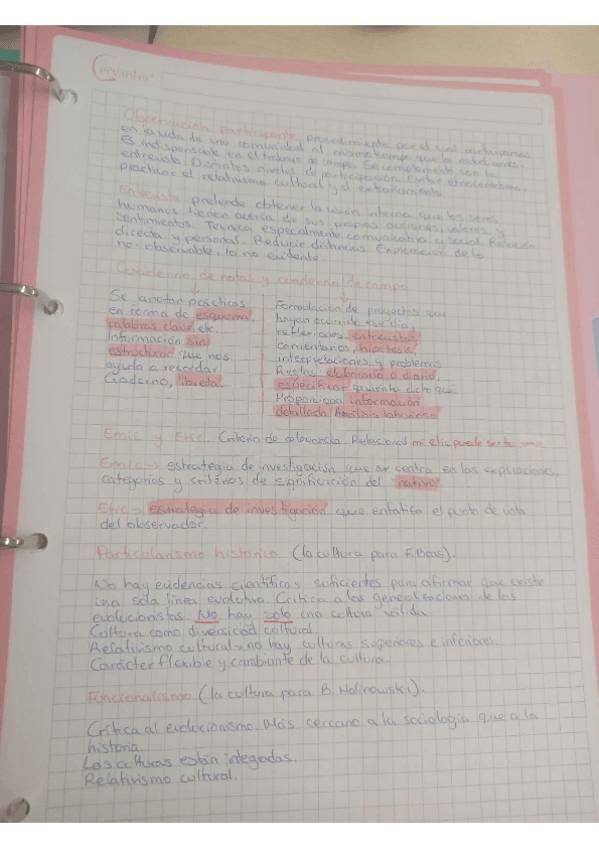 Cervantes
Observación participante, procedimiento por el cual participamos
en la vida de una comunidad al mismo tiempo que la estudiamos.
Es indispensable en el trabajo de campo. Se complementa con la
entrevista. Distintos niveles de participación. Evitar etnocentrismo,
practicar el relativismo cultural y el extrañamiento.
Entrevista pretende obtener la visión interna que los seres
humanos tienen acerca de sus propias acciones, valores y
sentimientos. Técnica especialmente comunicativa y social. Relación
directa y personal. Reducir distancias. Exploración de lo
no-observable, lo no evidente.
Cuaderno de notas y cuaderno de campo
Se anotan
en forma de esquema,
palabras clave, etc.
Información sin
estructurar que nos
ayuda a recordar
Cuaderno, libreta
Formulación de proyectos que
hayan ocurrido ese día,
reflexiones, entrevistas,
comentarios, hipótesis,
interpretaciones y problemas
elaborarlo a diario,
especificar quien ha dicho qué.
Proporciona información
detallada. Análisis laborioso
Emic y Etic. Criterio de relevancia. Relacional mi etic puede ser tu emic
Emic → estrategia de investigación que se centra en las explicaciones,
categorías y criterios de significación del "nativo"
Etic → estrategia de investigación que enfatiza el punto de vista
del observador.
Particularismo histórico (la cultura para F. Boas).
No hay evidencias científicas suficientes para afirmar que existe
una sola línea evolutiva. Crítica a las generalizaciones de los
evolucionistas. No hay solo una cultura válida
Cultura como diversidad cultural
Relativismo cultural → no hay culturas superiores e inferiores.
Carácter flexible y cambiante de la cultura.
Funcionalismo (la cultura para B. Malinowski).
Crítica al evolucionismo. Más cercano a la sociología que a la
historia.
Las culturas están integradas.
Relativismo cultural.